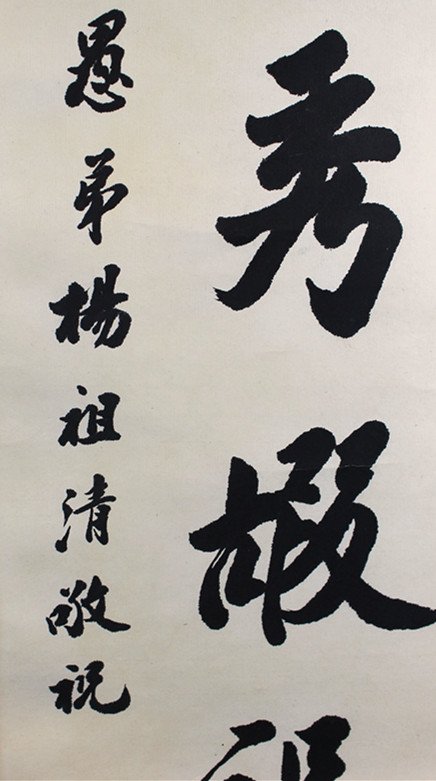 秀嘏
愚弟楊祖清敬祝